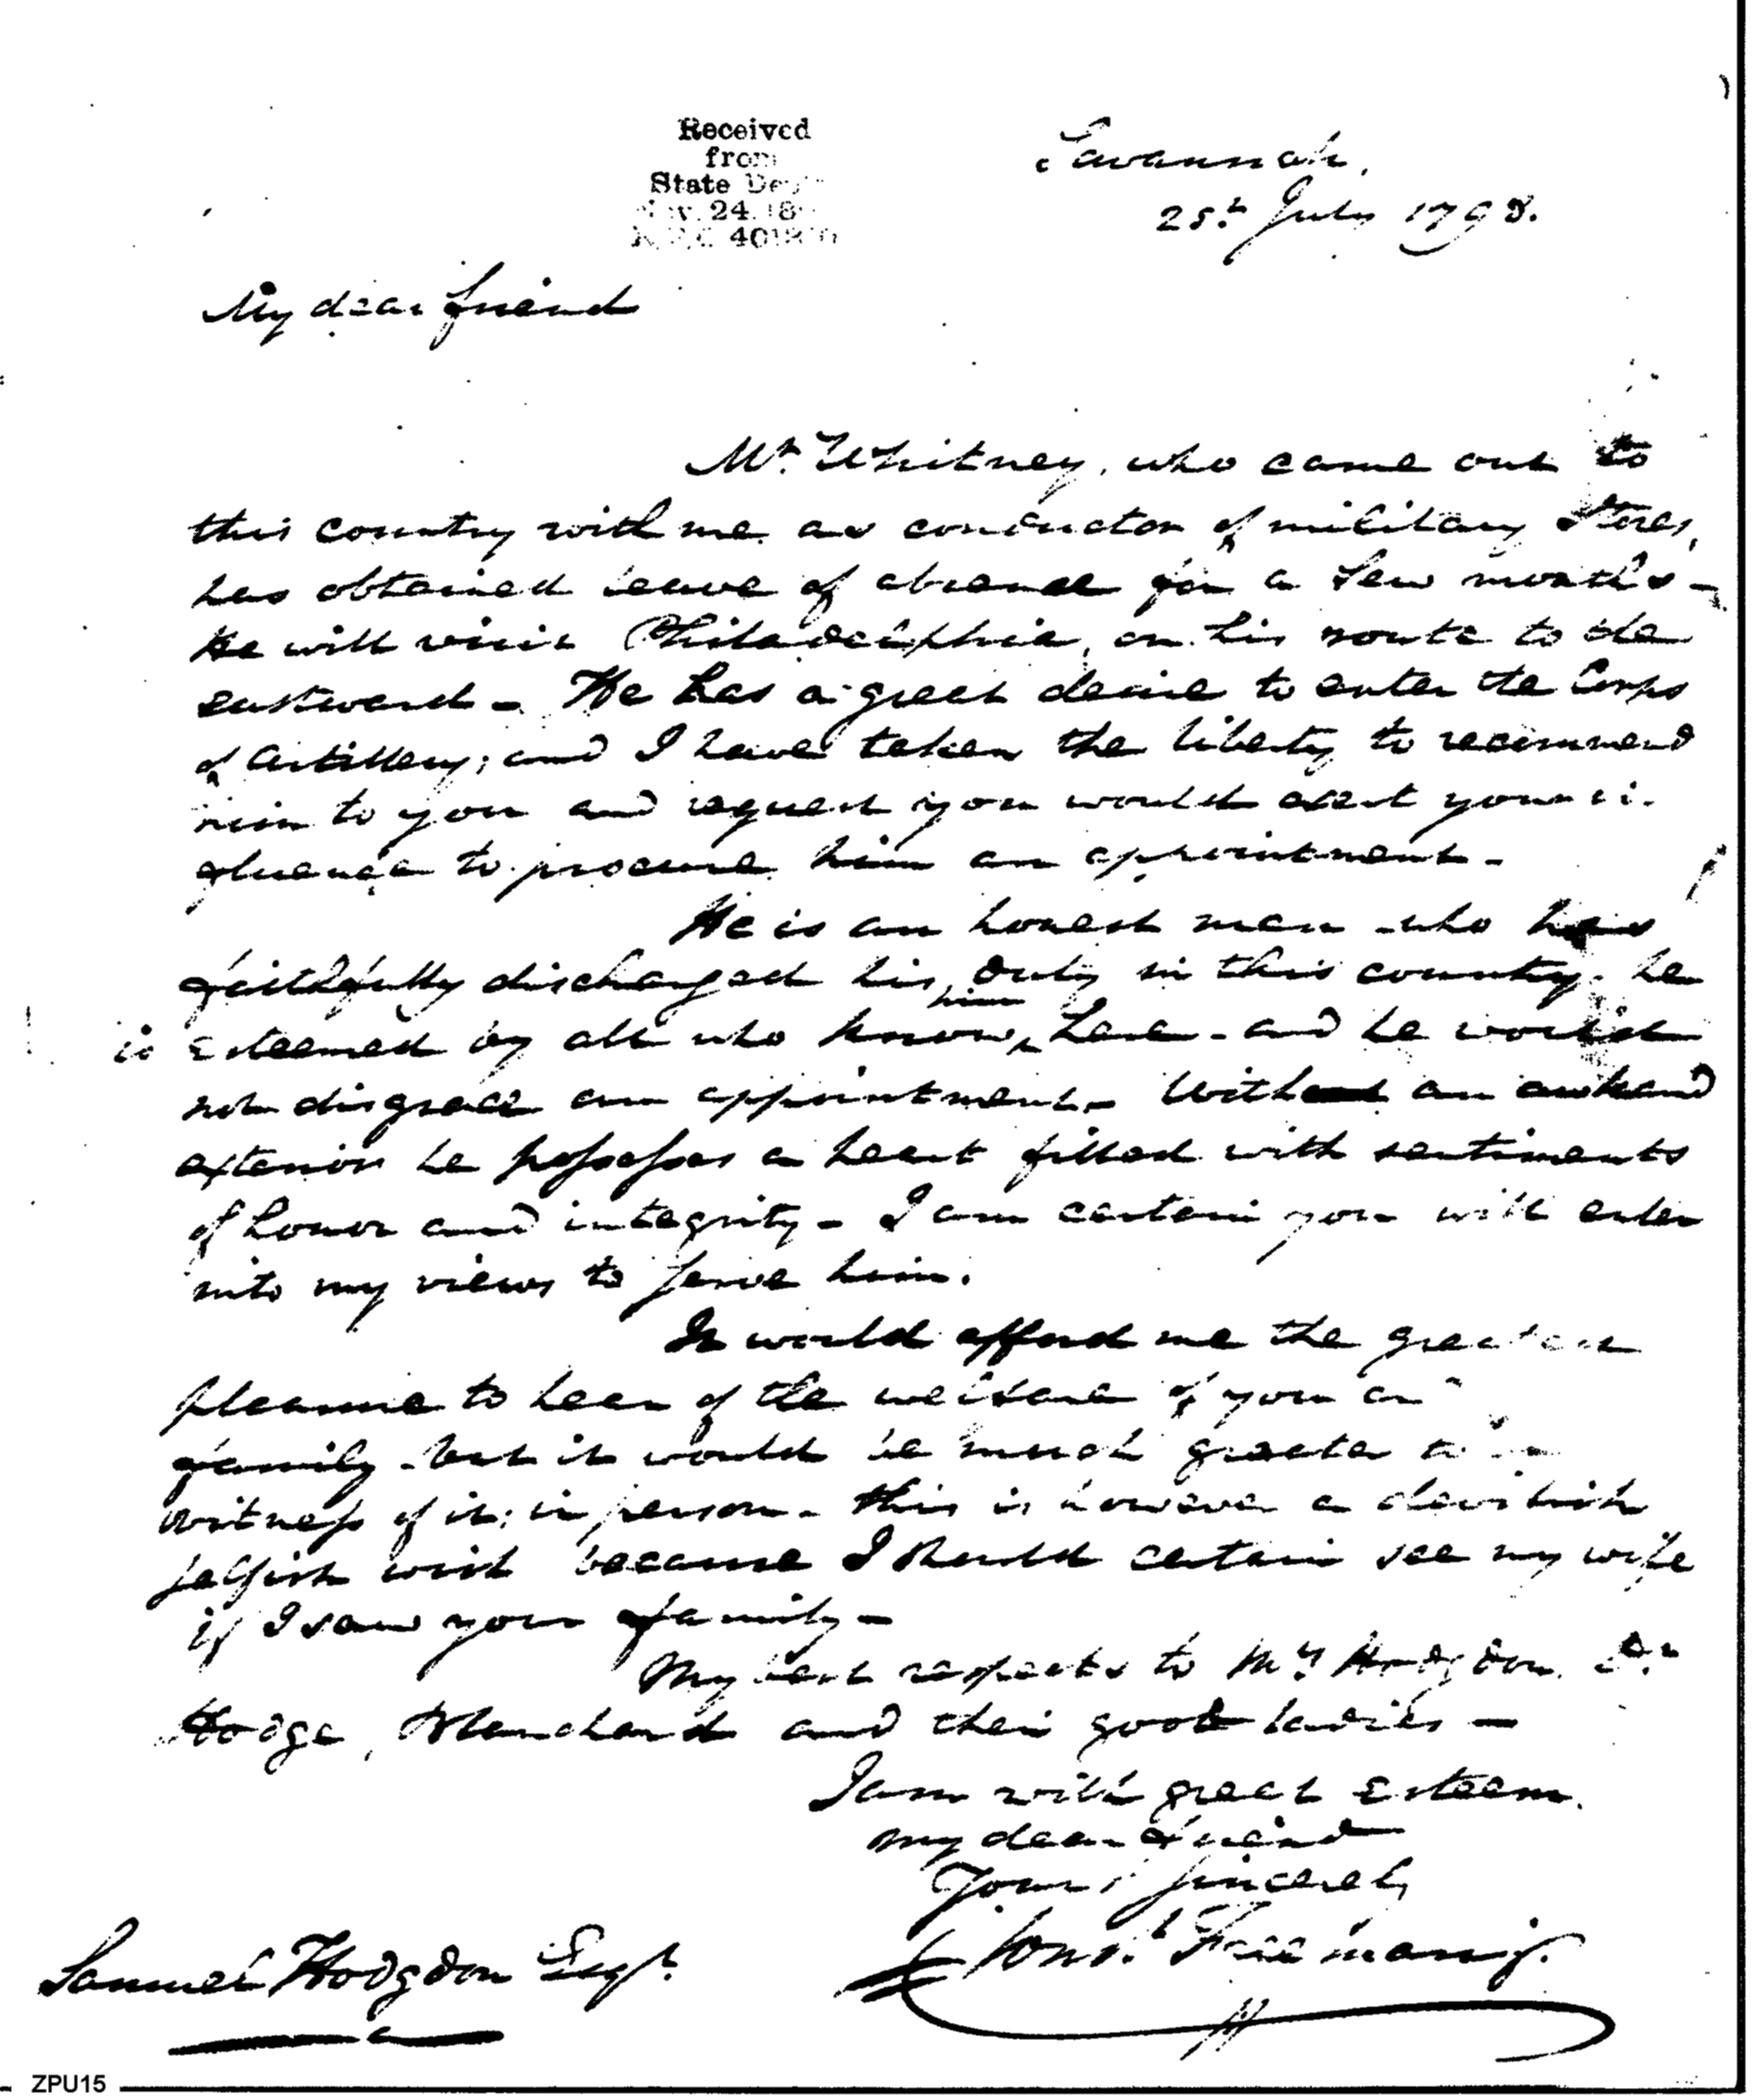 Received
from
State
24
Savannah,
25th July 1798.
My dear friend
Mr. Whitney, who came out to
this country with me as conductor of military Stores,
has obtained leave of absence for a few months -
He will visit Philadelphia, on his route to the
eastward - He has a great desire to enter the Corps
of Artillery; and I have taken the liberty to recommend
him to you and request you would exert your in-
fluence to procure him an appointment -
He is an honest man who has
faithfully discharged his duty in this country. he
him
is esteemed by all who know, here - and he would
not disgrace an appointment - With an awkard
exterior he possesses a heart filled with sentiments
of honor and integrity - I am certain you will enter
into my views to serve him.
It would afford me the greatest
pleasure to hear of the welfare of you
family - but it would be much greater to
witness of it, in person - this is however a devilish
selfish wish because I should certain see my wife
if I saw your family -
My best respects to Mrs. Hodgdon.
Hodge, Blanchard and their good ladies -
I am with great esteem.
my dear friend
Yours sincerely
Const. Freeman
Samuel Hodgdon Esqr.
ZPU15